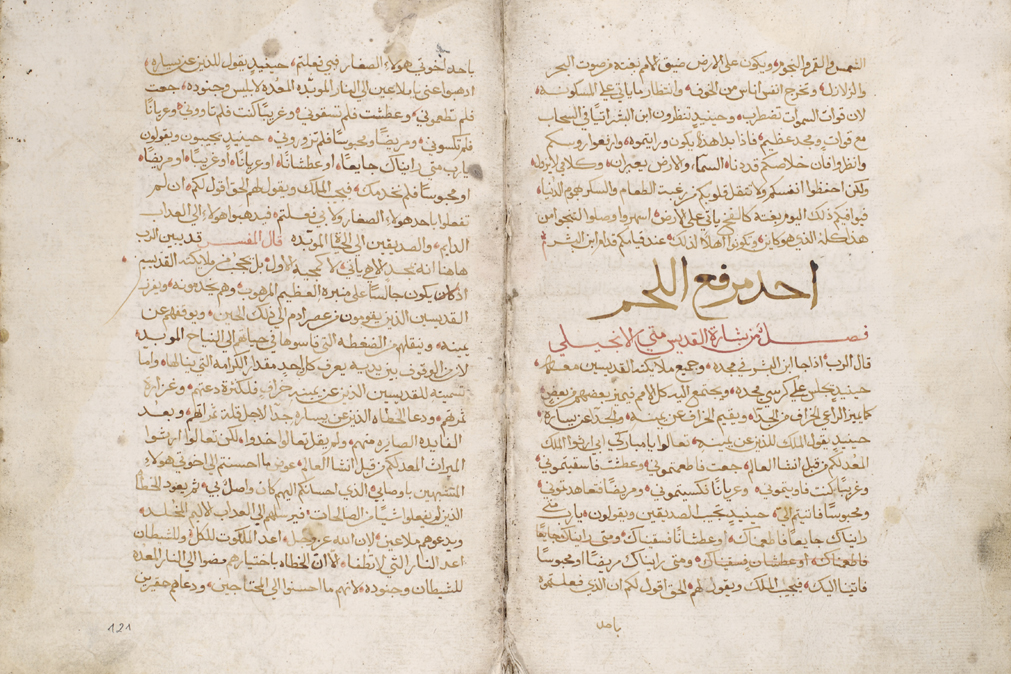 الشمس والقمر والنجوم ويكون على الارض ضيق الامم بغتة من صوت البحر
والزلازل وتخرج انفس اناس من الخوف وانتظار ما ياتي على المسكونة
لان قوات السموات تضطرب وحينيذ تنظرون ابن البشر اتيا في السحاب
مع قوات ومجد عظيم فاذا بدا هذا يكون ورايتموه وارفعوا روسكم
وانظروا فان خلاصكم قد دنا السما والارض يعبران وكلامي لا يزول
ولكن احفظوا انفسكم ولا تثقل قلوبكم من رغبت الطعام والسكر وهموم الدنيا
فيوافيكم ذلك اليوم بغتة كالفخ ياتي على الارض اسهروا وصلوا لتنجوا من
هذا كله الذي هو كاين وتكونوا اهلا لذلك عند قيامكم قدام ابن البشر
احد مرفع اللحم
فصل من بشارة القديس متى الانجيلي
قال الرب اذا جا ابن البشر في مجده وجميع ملايكته القديسين معه
حينيذ يجلس على كرسي مجده ويجتمع اليه كل الامم فيميز بعضهم من بعض
كما يميز الراعي الخراف من الجدا ويقيم الخراف عن يمينه والجدا عن يساره
حينيذ يقول الملك للذين عن يمينه تعالوا يا مباركي ابي ارثوا الملك
المعد لكم من قبل انشا العالم جعت فاطعمتموني وعطشت فاسقيتموني
وغريبا كنت فاويتموني وعريانا فكسيتموني ومريضا فتعاهدتوني
ومحبوسا فاتيتم الي حينيذ يجيب الصديقين ويقولون يارب متى
رايناك جايعا فاطعمناك او عطشانا فسقيناك ومتى رايناك جايعا
فاطعمناك او عطشان فسقيناك ومتى رايناك مريضا او محبوسا
فاتينا اليك فيجيب الملك ويقول لهم الحق اقول لكم ان الذي فعلتموه
باحد
باحد اخوتي هولاء الصغار فبي فعلتم حينيذ يقول للذين عن يساره
اذهبوا عني يا ملاعين الى النار الموبده المعدة لابليس وجنوده جعت
فلم تطعموني وعطشت فلم تسقوني وغريبا كنت فلم تاووني وعريانا
فلم تكسوني ومريضا ومحبوسا فلم تزوروني حينيذ يجيبون ويقولون
يارب متى رايناك جايعا او عطشانا او عريانا او غريبا او مريضا
او محبوسا فلم نخدمك فيجيب الملك ويقول لهم الحق اقول لكم ان لم
تفعلوا باحد هولاء الصغار ولا بي فعلتم فيذهبوا هولاء الى العداب
الدايم والصديقين الى الحياة الموبده قال المفسر قد بين الرب
هاهنا انه بمجد لاهوتاني لا كمجيه الاول بل يجي ملايكته القديسين
اذ كان يكون جالسا على منبره العظيم المرهوب وهم يخدمونه ويفرز
القديسين الذين يقومون من عصر ادم الى ذلك الحين ويوقفهم عن
يمينه وينقلهم من الضغطه التي قاسوها في حياتهم الى النياح الموبد
لان الوقوف بين يديه يعرف كل احد مقدار الكرامه التي ينالها واما
تسميته للقديسين الذين عن يمينه خراف فلكثرة دعتهم وغزارة
ثمرهم ودعا الخطاه الذين عن يساره جدا لاجل قلة ثمراتهم وبعد
الفايده الصايره منهم ولم يقل تعالوا خدوا لكن تعالوا ارثوا
الميراث المعد لكم من قبل انشا العالم عوض ما احسنتم الى اخوتي هولاء
المتشبهين باوصاتي الذي احسانكم اليهم كان واصل لي ثم يعود الخطاه
الذين لم يفعلوا شيا من الصالحات فيرسلهم الى العداب لالم المخلد
ويدعوهم ملاعين لان الله عز وجل اعد الملكوت للكل وللشيطان
اعد النار التي لا تطفا الا ان الخطاه باختيارهم مضوا الى النار المعده
للشيطان وجنوده لانهم ما احسنوا الى المحتاجين ودعاهم حقيرين
121